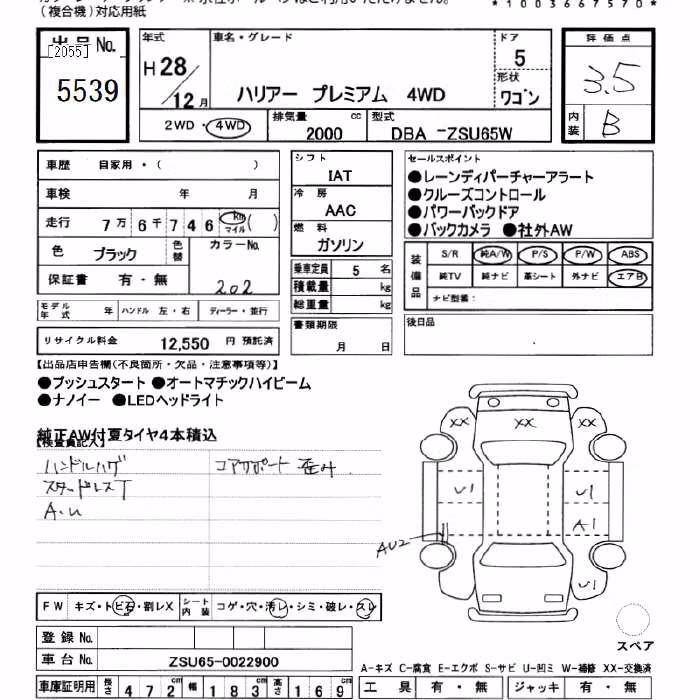 (複合機)対応用紙
*1003667570*
出品No.
[2055]
5539
年式
H28/12月
車名・グレード
ハリアー プレミアム 4WD
ドア
5
形状
ワゴン
評価点
3.5
内装
B
2WD・4WD
排気量
2000 cc
型式
DBA -ZSU65W
車歴 自家用・( )
車検 年 月
走行 7万 6千 7 4 6 km マイル ( )
色 ブラック 色替 カラーNo.
保証書 有・無 202
モデル年式 年 ハンドル 左・右 ディーラー・並行
リサイクル料金 12,550 円 預託済
シフト
IAT
冷房
AAC
燃料
ガソリン
乗車定員 5 名
積載量 kg
総重量 kg
書類期限
月 日
セールスポイント
●レーンディパーチャーアラート
●クルーズコントロール
●パワーバックドア
●バックカメラ ●社外AW
装備品
S/R 純A/W P/S P/W ABS
純TV 純ナビ 革シート 外ナビ エアB
ナビ型番:
後日品
【出品店申告欄(不良箇所・欠品・注意事項等)】
●プッシュスタート ●オートマチックハイビーム
●ナノイー ●LEDヘッドライト
純正AW付夏タイヤ4本積込
【検査員記入】
ハンドルハゲ
スタッドレスT
A.U
コアサポート 歪み
XX XX
U1 U1
A1
AU2
U1
スペア
FW キズ・トビ石・割レX シート内装 コゲ・穴・汚レ・シミ・破レ・スレ
登録No.
車台No. ZSU65-0022900
A-キズ C-腐食 E-エクボ S-サビ U-凹ミ W-補修 XX-交換済
車庫証明用 長さ 472cm 幅 183cm 高さ 169cm
工具 有・無 ジャッキ 有・無